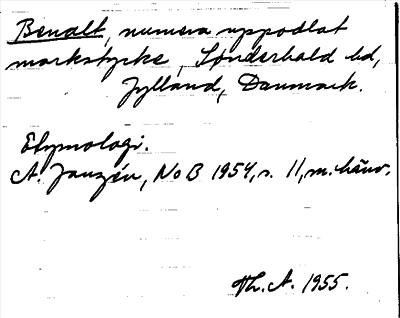 Benalt, numera uppodlat
markstycke, Sønderhald hd,
Jylland, Danmark.
Etymologi.
A. Janzén, NoB 1954, s. 11, m. hänv.
Th. A. 1955.